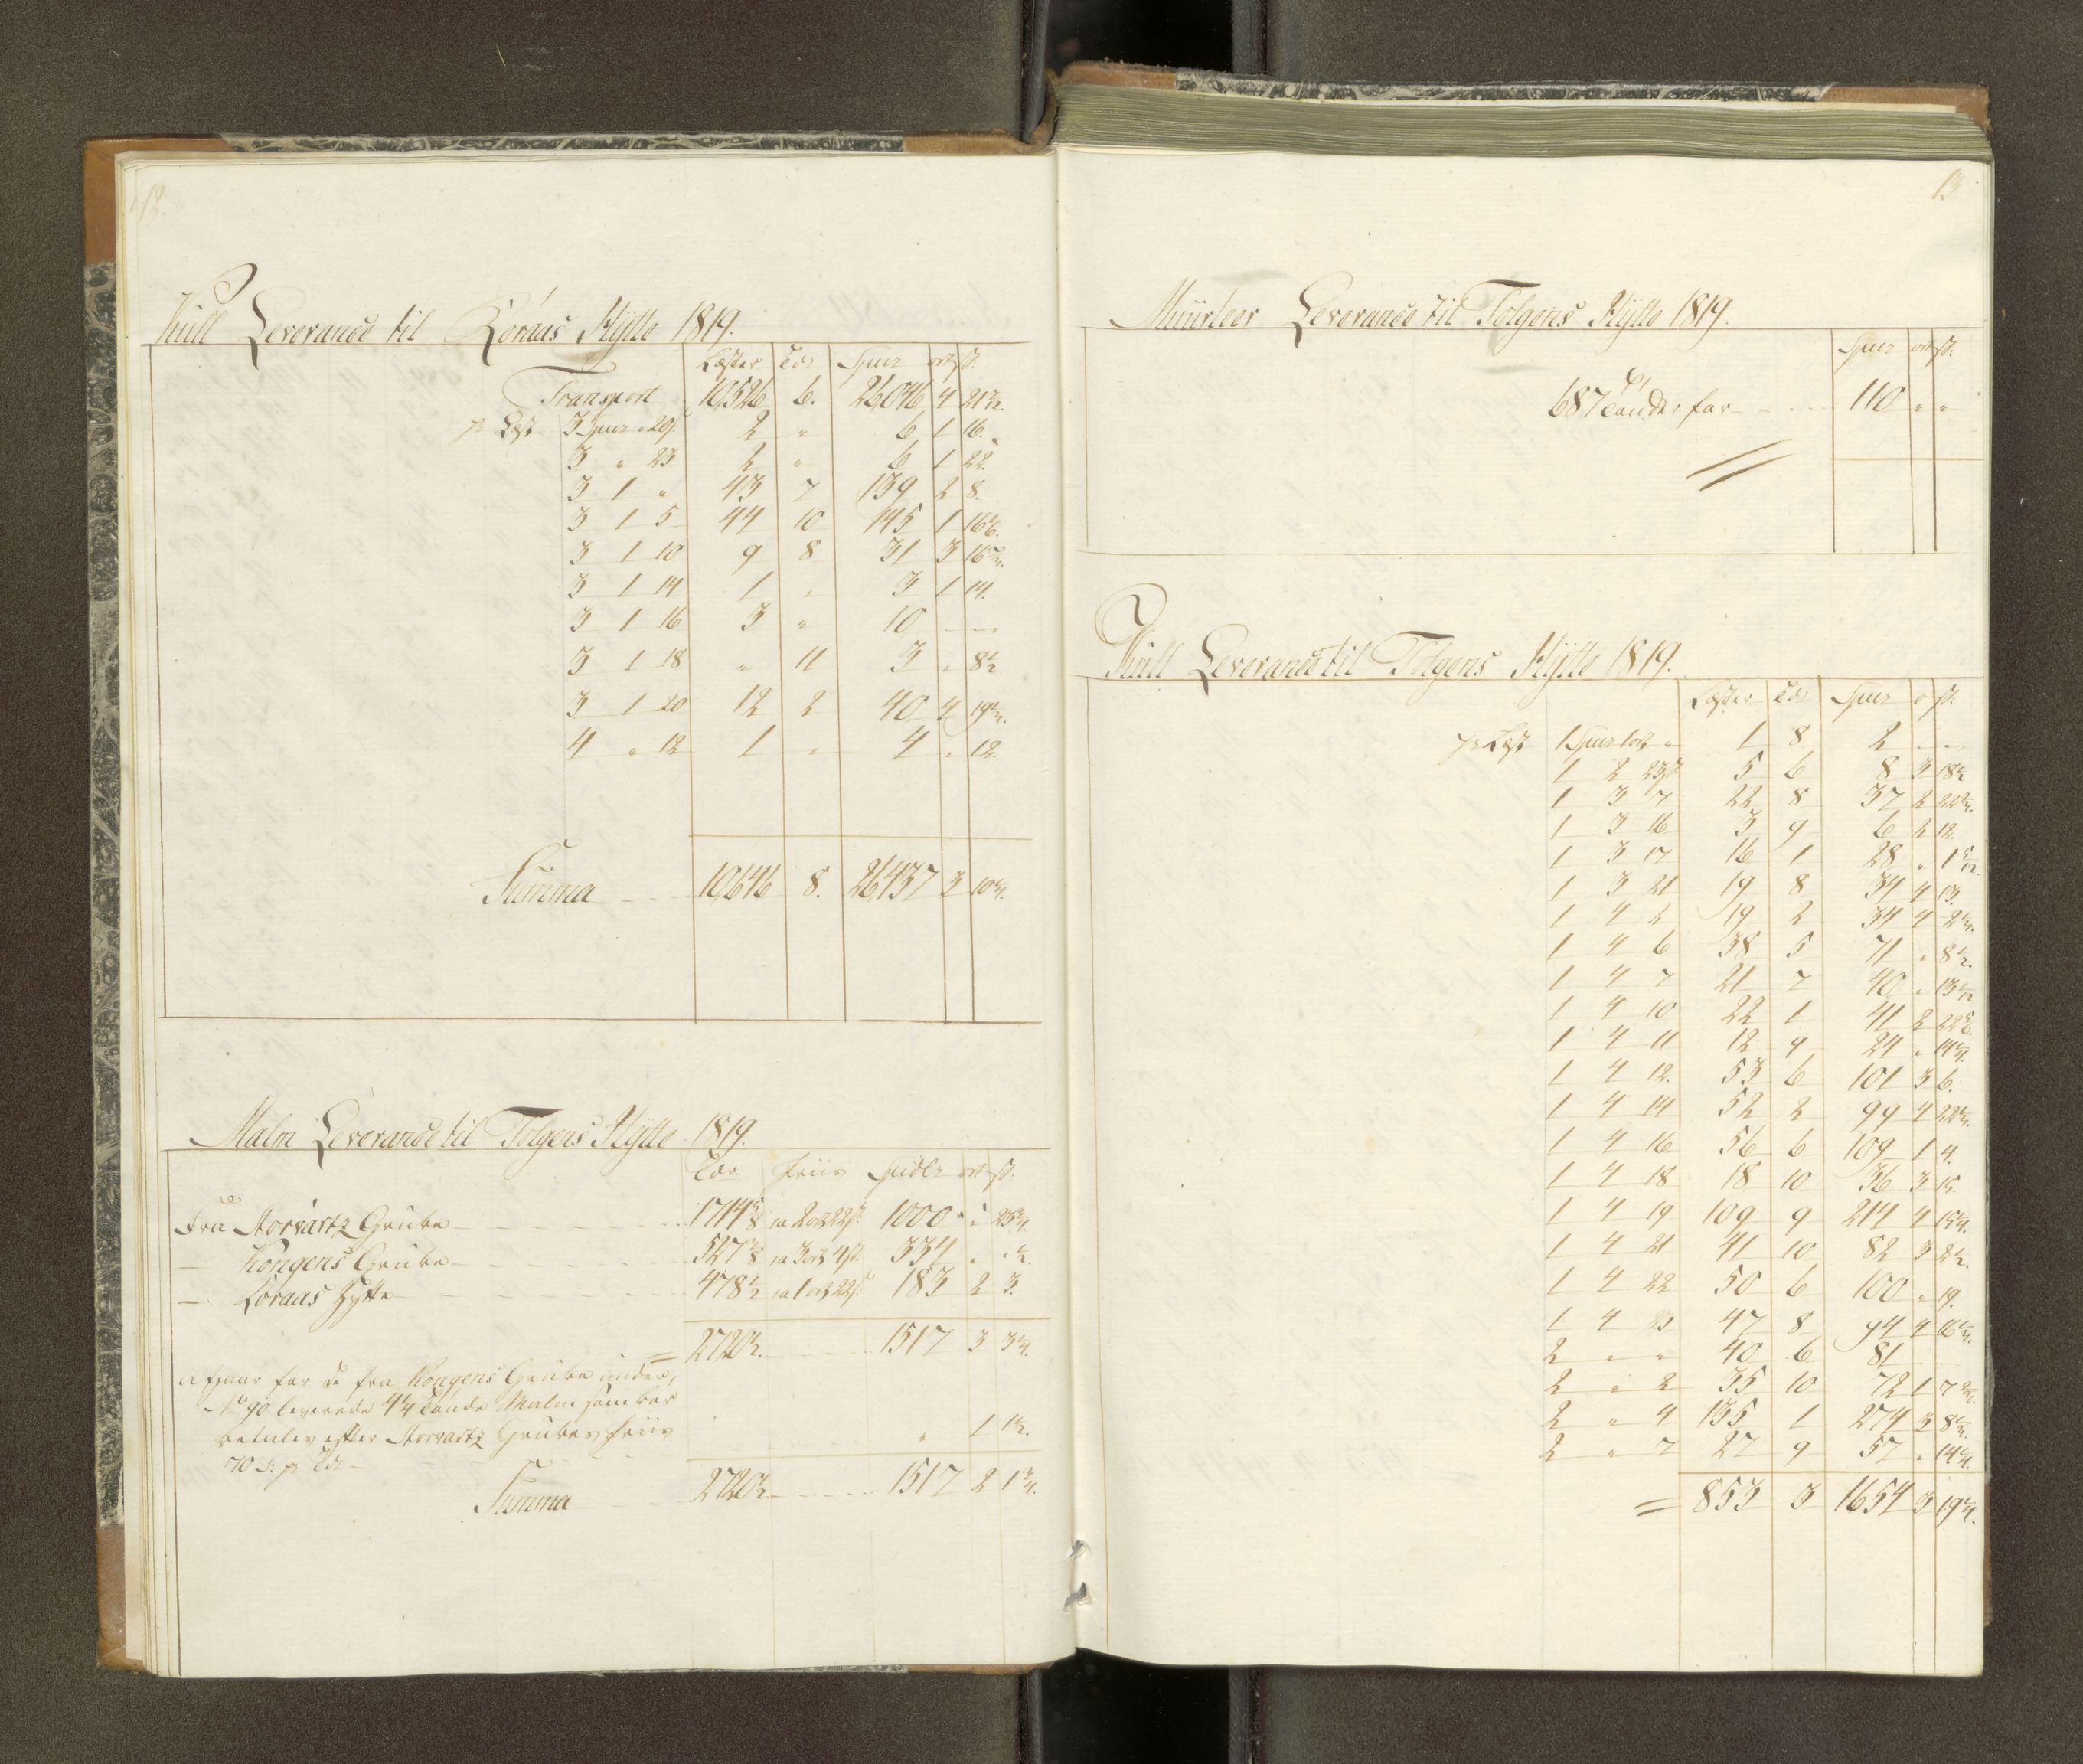 12.
Kull Leverance til Röraas Hytte 1819.
Læster Tdr Spdr ort s:
Transport 10,526 6. 26,046 4 21 7/12.
pr Læst 3 Spdr " 20 s: 2 " 6 1 16.
3 " 23 2 " 6 1 22.
3 1 " 43 7 139 2 8.
3 1 5 44 10 145 1 16 1/6.
3 1 10 9 8 31 3 16
3 1 14 1 " 3 1 14.
3 1 16 3 " 10 — —
3 1 18 " 11 3 " 8 1/2
3 1 20 12 2 40 4 19
4 " 12 1 " 4 " 12.
Summa 10,646 8. 26,437 3 10
Malm Leverance til Tolgens Hytte 1819.
Tdr Priis Spdlr ort s:
Fra Storvartz Grube 1714 5/8 a 2 ort 22 s: 1000 " 23 3/4.
— Kongens Grube 527 3/8 a 3 ort 4 s: 334 " " 1/2.
— Röraas Hytte 478 1/2 a 1 ort 22 s: 183 2 3.
2720 1/2. 1517 3 3 1/4.
afgaar for de fra Kongens Grube under
No 90 leverede 4 1/4 Tönde Malm som bör
betales efter Storvartz Grubes Priis
70 s: pr Td " 1 1 1/2.
Summa 2720 1/2. 1517 2 1 3/4.
13
Muurleer Leverance til Tolgens Hytte 1819.
Spdr ort s:
687 Tönder for 110 " "
Kull Leverance til Tolgens Hytte 1819.
Læster Tdr Spdr o s:
pr Læst 1 Spdr 1 ort " 1 8 2 — —
1 2 23 s: 5 6 8 3 18 1/2
1 3 7 22 8 37 2 22
1 3 16 3 9 6 2 12.
1 3 17 16 1 28 " 1 5/12.
1 3 21 19 8 34 4 13.
1 4 2 19 2 34 4 2
1 4 6 38 5 71 " 8 1/2.
1 4 7 21 7 40 " 13 1/12
1 4 10 22 1 41 2 22 5/6.
1 4 11 12 9 24 " 14 1/4.
1 4 12. 53 6 101 3 6.
1 4 14 52 2 99 4 22
1 4 16 56 6 109 1 4.
1 4 18 18 10 36 3 15.
1 4 19 109 9 214 4 15 1/4.
1 4 21 41 10 82 3 2 1/2.
1 4 22 50 6 100 " 19.
1 4 23 47 8 94 4 16
2 " " 40 6 81
2 " 2 35 10 72 1 7
2 " 4 135 1 274 3 8
2 " 7 27 9 57 " 14 1/4.
853 3 1654 3 19